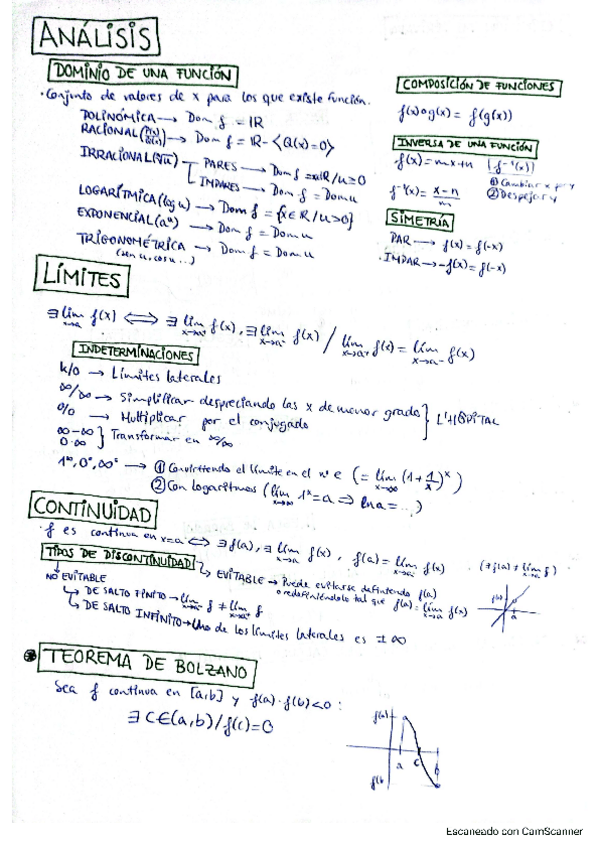 ANÁLISIS
DOMINIO DE UNA FUNCIÓN
· Conjunto de valores de x para los que existe función.
POLINÓMICA → Dom f = ℝ
RACIONAL (P(x)/Q(x)) → Dom f = ℝ - {Q(x)=0}
IRRACIONAL (ⁿ√u) → PARES → Dom f = x∈ℝ / u≥0
IMPARES → Dom f = Dom u
LOGARÍTMICA (log u) → Dom f = {x∈ℝ / u>0}
EXPONENCIAL (aᵘ) → Dom f = Dom u
TRIGONOMÉTRICA → Dom f = Dom u
(sen u, cos u...)
COMPOSICIÓN DE FUNCIONES
f(x)∘g(x) = f(g(x))
INVERSA DE UNA FUNCIÓN
f(x) = mx+n [f⁻¹(x)]
① Cambiar x por y
f⁻¹(x) = (x-n)/m ② Despejar y
SIMETRÍA
PAR → f(x) = f(-x)
· IMPAR → -f(x) = f(-x)
LÍMITES
∃ lím x→a f(x) ⟺ ∃ lím x→a⁺ f(x), ∃ lím x→a⁻ f(x) / lím x→a⁺ f(x) = lím x→a⁻ f(x)
INDETERMINACIONES
k/0 → Límites laterales
∞/∞ → Simplificar despreciando las x de menor grado } L'HÔPITAL
0/0 → Multiplicar por el conjugado
∞-∞
0·∞ } Transformar en ∞/∞
1^∞, 0°, ∞° → ① Convirtiendo el límite en el nº e (= lím x→∞ (1+1/x)ˣ)
② Con logaritmos (lím x→∞ 1ˣ = a ⇒ ln a = ...)
CONTINUIDAD
· f es continua en x=a ⟺ ∃ f(a), ∃ lím x→a f(x), f(a) = lím x→a f(x)
TIPOS DE DISCONTINUIDAD
EVITABLE → Puede evitarse definiendo f(a)
o redefiniéndolo tal que f(a) = lím x→a f(x)
NO EVITABLE
DE SALTO FINITO → lím x→a⁻ f ≠ lím x→a⁺ f
DE SALTO INFINITO → Uno de los límites laterales es ±∞
f(a)
a
TEOREMA DE BOLZANO
Sea f continua en [a,b] y f(a)·f(b)<0 :
∃ c∈(a,b) / f(c)=0
f(a)
a c b
f(b
Escaneado con CamScanner